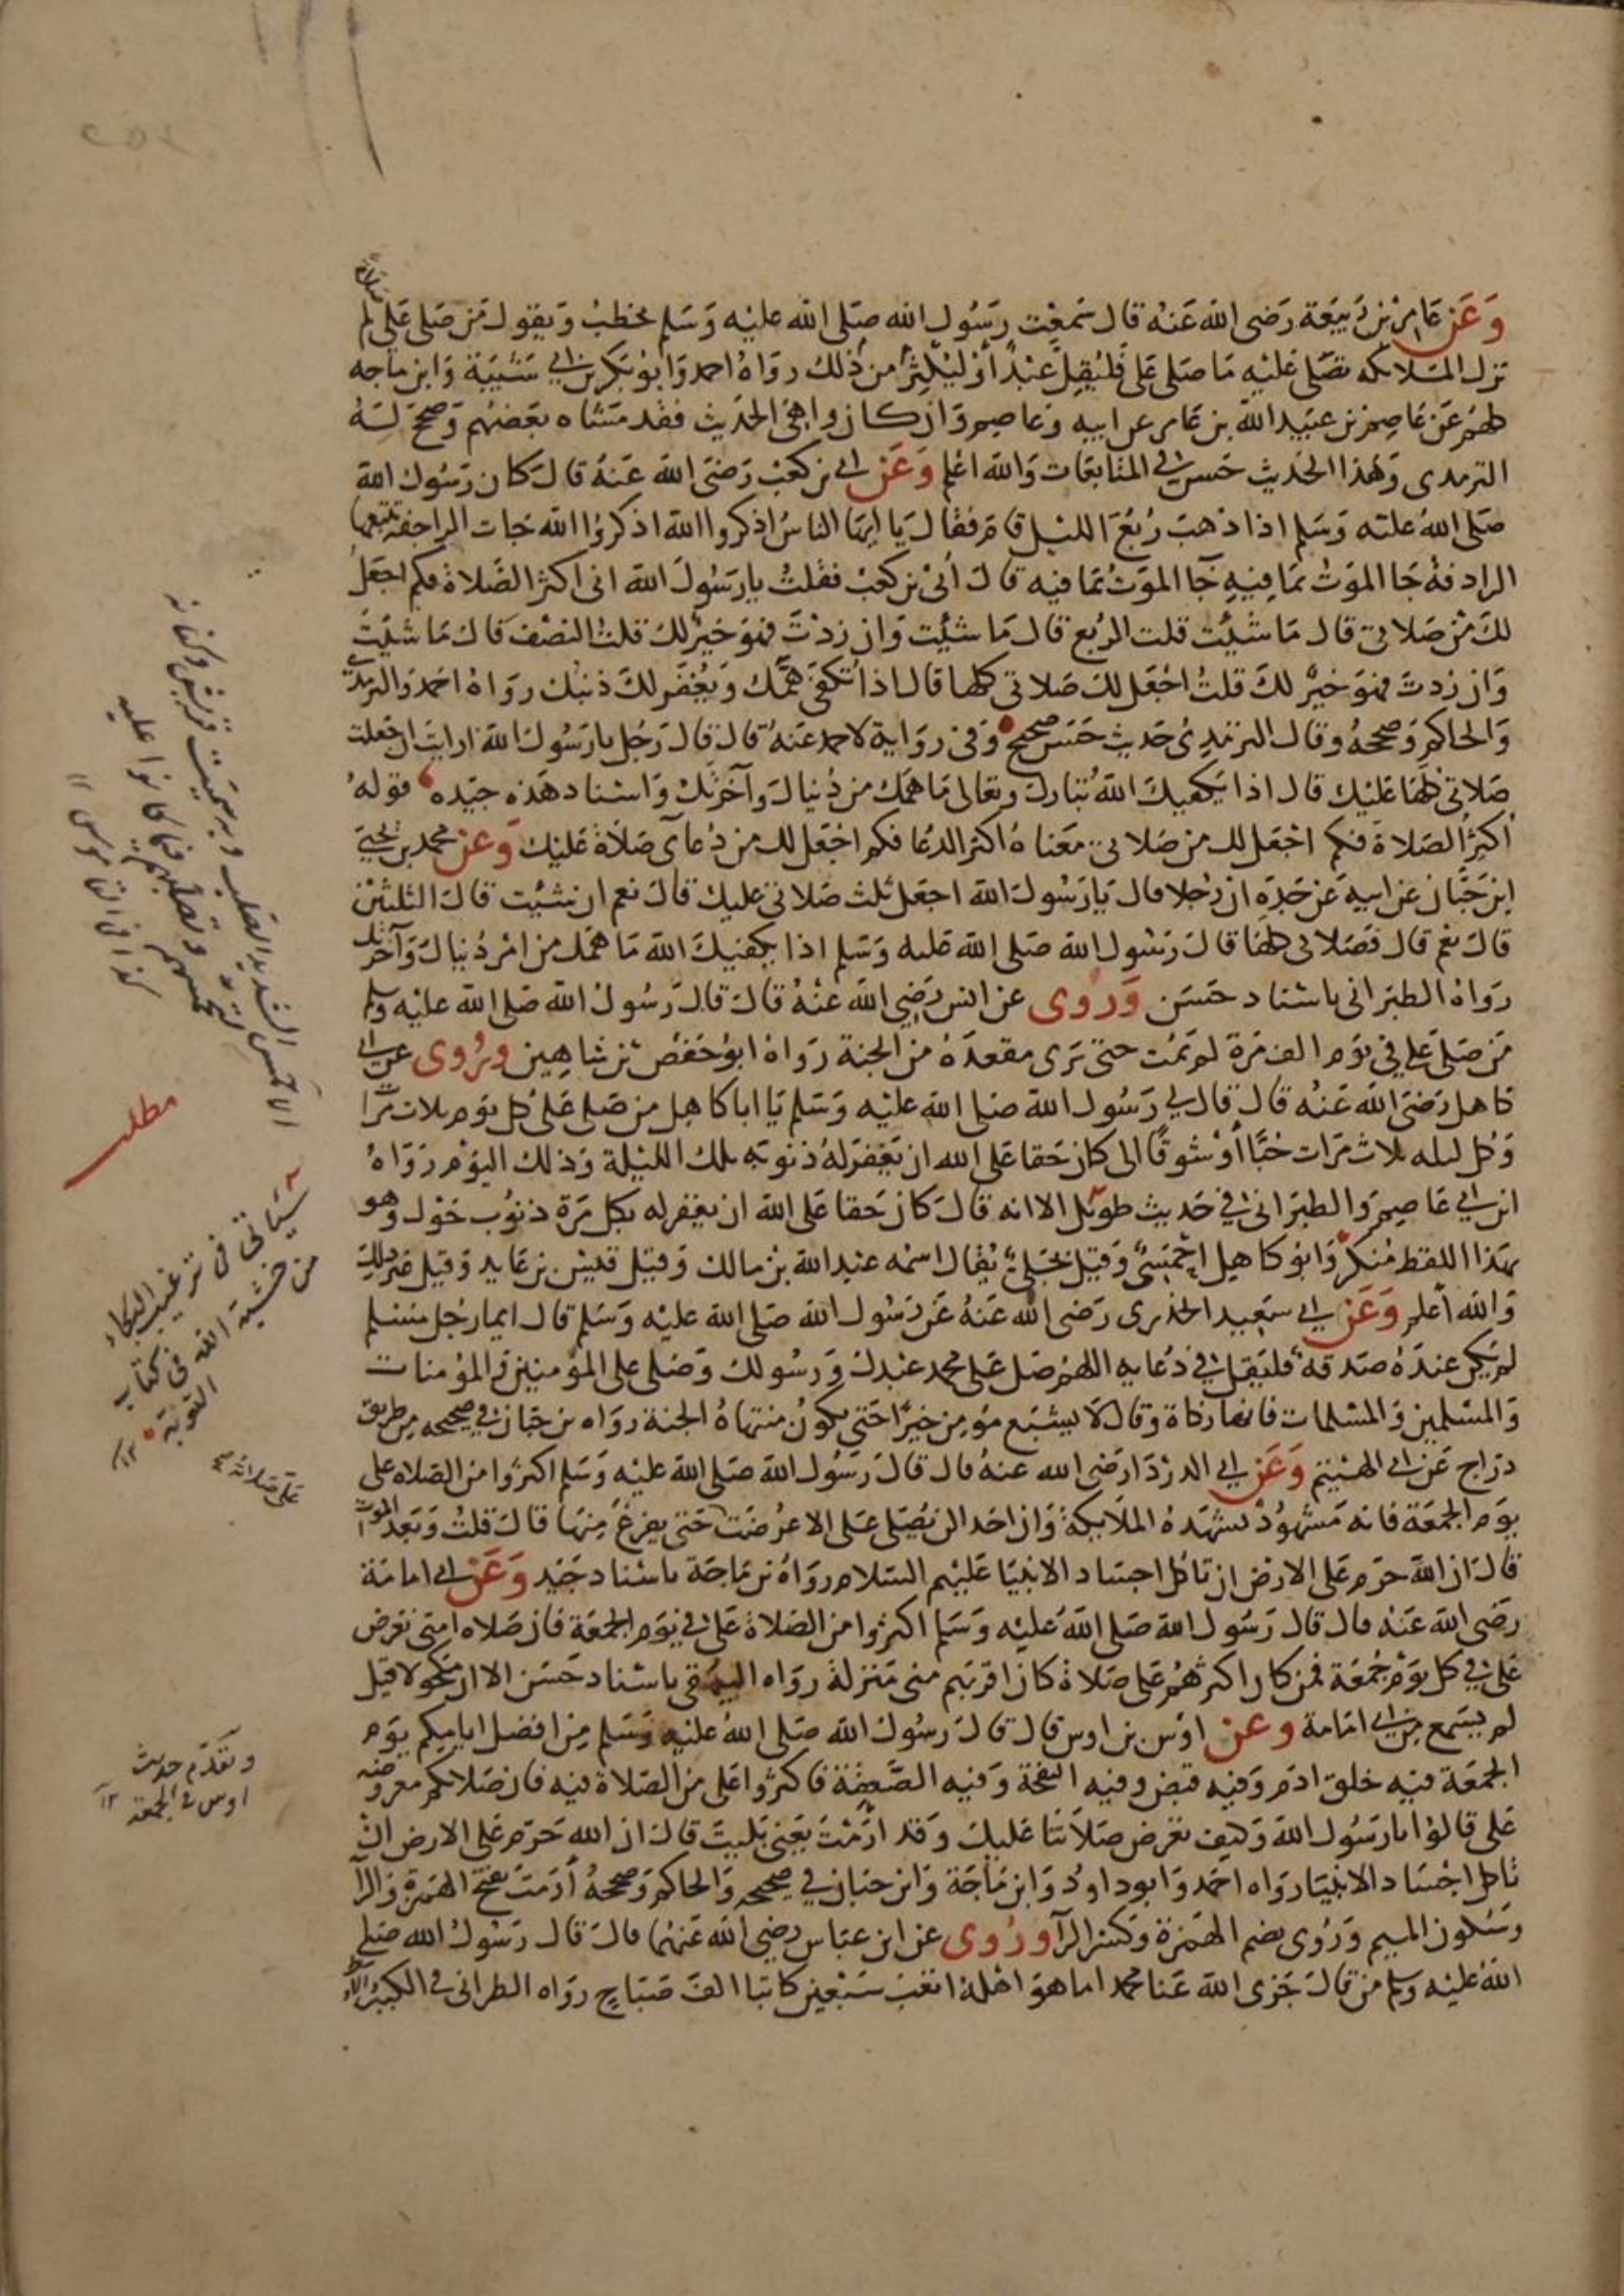 وَعَن عَامِر بن رَبيعَة رَضى الله عَنهُ قال سَمعْت رَسُول الله صَلى الله عليْه وَسَلم يخطبُ وَيقول مَن صَلى عَلى لم
تزل الملائكه تصَلى عَليْه مَا صَلى عَلى فَليُقِل عَبْدٌ أوْ ليُكِثرْ من ذلك روَاهُ احمد وَابُو بَكر بن ابي شَيْبَة وَابن ماجه
كلهُم عَن عَاصِم بن عبَيد الله بن عَامر عن ابيه وَعاصم وَان كان واهى الحَديث فقد مَشاه بعَضهُم وَصحح لهُ
الترمدى وَهذا الحَديث حَسن في المتابعَات وَالله اعْلم وَعَن ابي بن كعْب رَضىَ الله عَنهُ قالَ كان رَسُول الله
صَلى اللهُ عليه وَسَلم اذا ذهبَ رُبُعُ الليْل قامَ فقالَ يَا ايهَا الناسُ اذكروا الله اذكرُوا الله جَات الراجفة تتبعهَا
الرادفة جَا الموَتْ بمَا فيْهِ جَا الموَتُ بمَا فيه قالَ أُبىْ بن كعْبْ فقلتُ يا رَسُولَ الله انى اكثر الصَّلاة فكم اجعَلُ
لكَ مِنْ صَلاتى قال مَا شئْت قلت الربُع قال مَا شئْت وَان زدْتَ فهوَ خيْرٌ لك قلتُ النصْف قالَ مَا شئْتَ
وَان زدتَ فهوَ خيْرٌ لكَ قلتُ اجْعَل لك صَلاتى كلها قال اذا تكفَى همَّك وَيُغْفَر لكَ ذنبْك روَاهُ احمَد وَالترمذى
وَالحاكم وَصححهُ وقال الترمذِى حَديث حَسَن صحيح وَفى روَاية لاحمد عَنهُ قال قالَ رَجُل يا رَسُولَ الله ارايتَ ان جعلت
صَلاتى كلهَا عَليْك قال اذا يَكفيكَ اللهُ تبَاركَ وتعَالى مَا همَّك من دُنياكَ وآخرَتكْ وَاسْناد هَذه جيّده قولهُ
أكثر الصَلاة فكم اجْعَل لك من صَلاتى معَناهُ اكثر الدعَا فكم اجْعَل لك من دُعَائى صَلاة عَليْك وَعن محمد بن يَحيَى
ابن حَبَّان عن ابيه عَن جَدِه ان رُجلا قال يَا رَسُولَ الله اجعَل ثلث صَلاتى عليك قالَ نعم ان شئت قال الثلثيْن
قالَ نعَم قال فصَلاتى كلهَا قالَ رَسُول الله صَلى الله عَليه وَسَلم اذا يَكفيكَ الله مَا همَّك من امْر دُنياكَ وَآخرتك
رَوَاهُ الطبَرانى باسْناد حَسَن وَرُوى عن انس رَضِى الله عنْهُ قالَ قالَ رَسُول الله صَلى الله عليْه وسلم
مَن صَلى عَلي فى يَوْم الف مَرة لم يَمُت حتى يَرى مقعدَهُ من الجنة رَوَاهُ ابُو حَفصْ بن شاهِين ورُوى عن ابى
كاهل رَضىَ الله عَنهُ قال قال لي رَسُول الله صَلى الله عليْه وَسَلم يَا ابا كاهل من صَلى عَلىَ كل يَوم ثلاث مرات
وَكل ليله ثلاث مَرات حُبًّا أوْ شوقًا الى كان حَقا عَلى الله ان يَغفرَ لهُ ذنوبَه تلك الليْلة وَذلك اليوْم رَوَاهُ
ابن ابي عَاصِم وَالطبَرانى في حَديث طويْل الا انه قالَ كان حَقا عَلى الله ان يغفر له بكل مَرَة ذنوُب حَوْل وهو
بهذا اللفظ مُنكر وَابو كاهيل احْمَسِىٌّ وَقيْل بجَلىٌّ يُقال اسْمه عبْد الله بنْ مالك وَقيْل قيْس بن عَايد وَقيل غير ذلك
وَالله أعلم وَعَن ابي سَعيد الخدرى رَضى الله عَنهُ عَن رَسُول الله صَلى الله عليْه وَسَلم قال ايما رَجُل مسْلم
لم يَكن عندَهُ صَدقة فليَقل في دُعَايه اللهم صَل عَلى محمد عبْدكَ وَرسُولك وَصَلى على المؤمنين وَالمؤمنات
وَالمسْلمين وَالمسْلمات فانها زكاة وَقال لا يشبَع مؤمِن خيرًا حَتى يَكون منتهاهُ الجنة روَاه بن حبَان في صحيحه من طريق
درَاج عَن ابي الهيْثم وَعَن ابي الدرْدَا رضَى الله عنهُ قال قالَ رَسُول الله صَلى الله عليْه وَسَلم اكثرُوا من الصَلاه على
يوَم الجمُعَة فانه مَشهُودْ تشهَدهُ الملايكة وَان احَدا لن يُصَلى عَلى الا عُرضَت حَتى يفرغَ مِنهَا قالَ قلتُ وَبَعد الموت
قالَ ان الله حَرم عَلى الارْض ان تأكل اجسَاد الانبيَا عَليْهم السَلام روَاهُ بن مَاجَة باسْناد جَيْد وَعَن ابي امَامَة
رضَى الله عَنهُ قال قال رَسُول الله صَلى اللهُ عليْه وَسَلم اكثرُوا من الصَلاة عَلى في يوَم الجمعَة فان صَلاه امتى تعرَض
عَلي في كل يوَم جُمعَة فمن كان اكثرهُم عَلى صَلاة كان اقربَهم منى مَنزلة روَاه البيهقى باسْناد حَسَن الا ان مَكحولا قيل
لم يَسمع من ابي امَامة وعن اوْس بن اوس قال قالَ رَسُول الله صَلى اللهُ عليْه وَسَلم مِن افضل ايامِكم يوَم
الجمُعَة فيْه خلق ادَم وَفيه قبض وفيه النفخة وَفيه الصَّعقة فاكثرُوا عَلى منَ الصَلاة فيه فان صَلاتكم معروضه
عَلى قالوا يا رَسُول الله وَكيف تعرَض صَلاتنا عَليكَ وَقد ارِمْتَ يعَنى بَليتَ قالَ ان الله حَرّم عَلى الارض انْ
تاكل اجْسَاد الانبيَا روَاه احَمد وَابود اودُ وَابن مَاجَة وَابن حبَان في صحيحه وَالحاكم وَصححهُ أرَمتَ بفتح الهمزة وَالرآ
وسُكون الميم وَرُوى بضم الهمْزة وَكسْر الرآ ورُوى عن ابن عبَاس رضِى الله عَنهُما قالَ قال رَسُولُ الله صَلى
اللهُ عليْه وسلم من قالَ جَزى الله عَنا محمد اما هوَ اهْلهُ اتعَبَ سَبْعين كاتبا الفَ صَبَاحٍ روَاه الطبرانى فى الكبير
مطلب
سَيَاتى فى ترغيب البكاء
من خشية الله فى كتاب
التوبة ١٢
وتقدّم حديث
اوس فى الجمعة ١٢